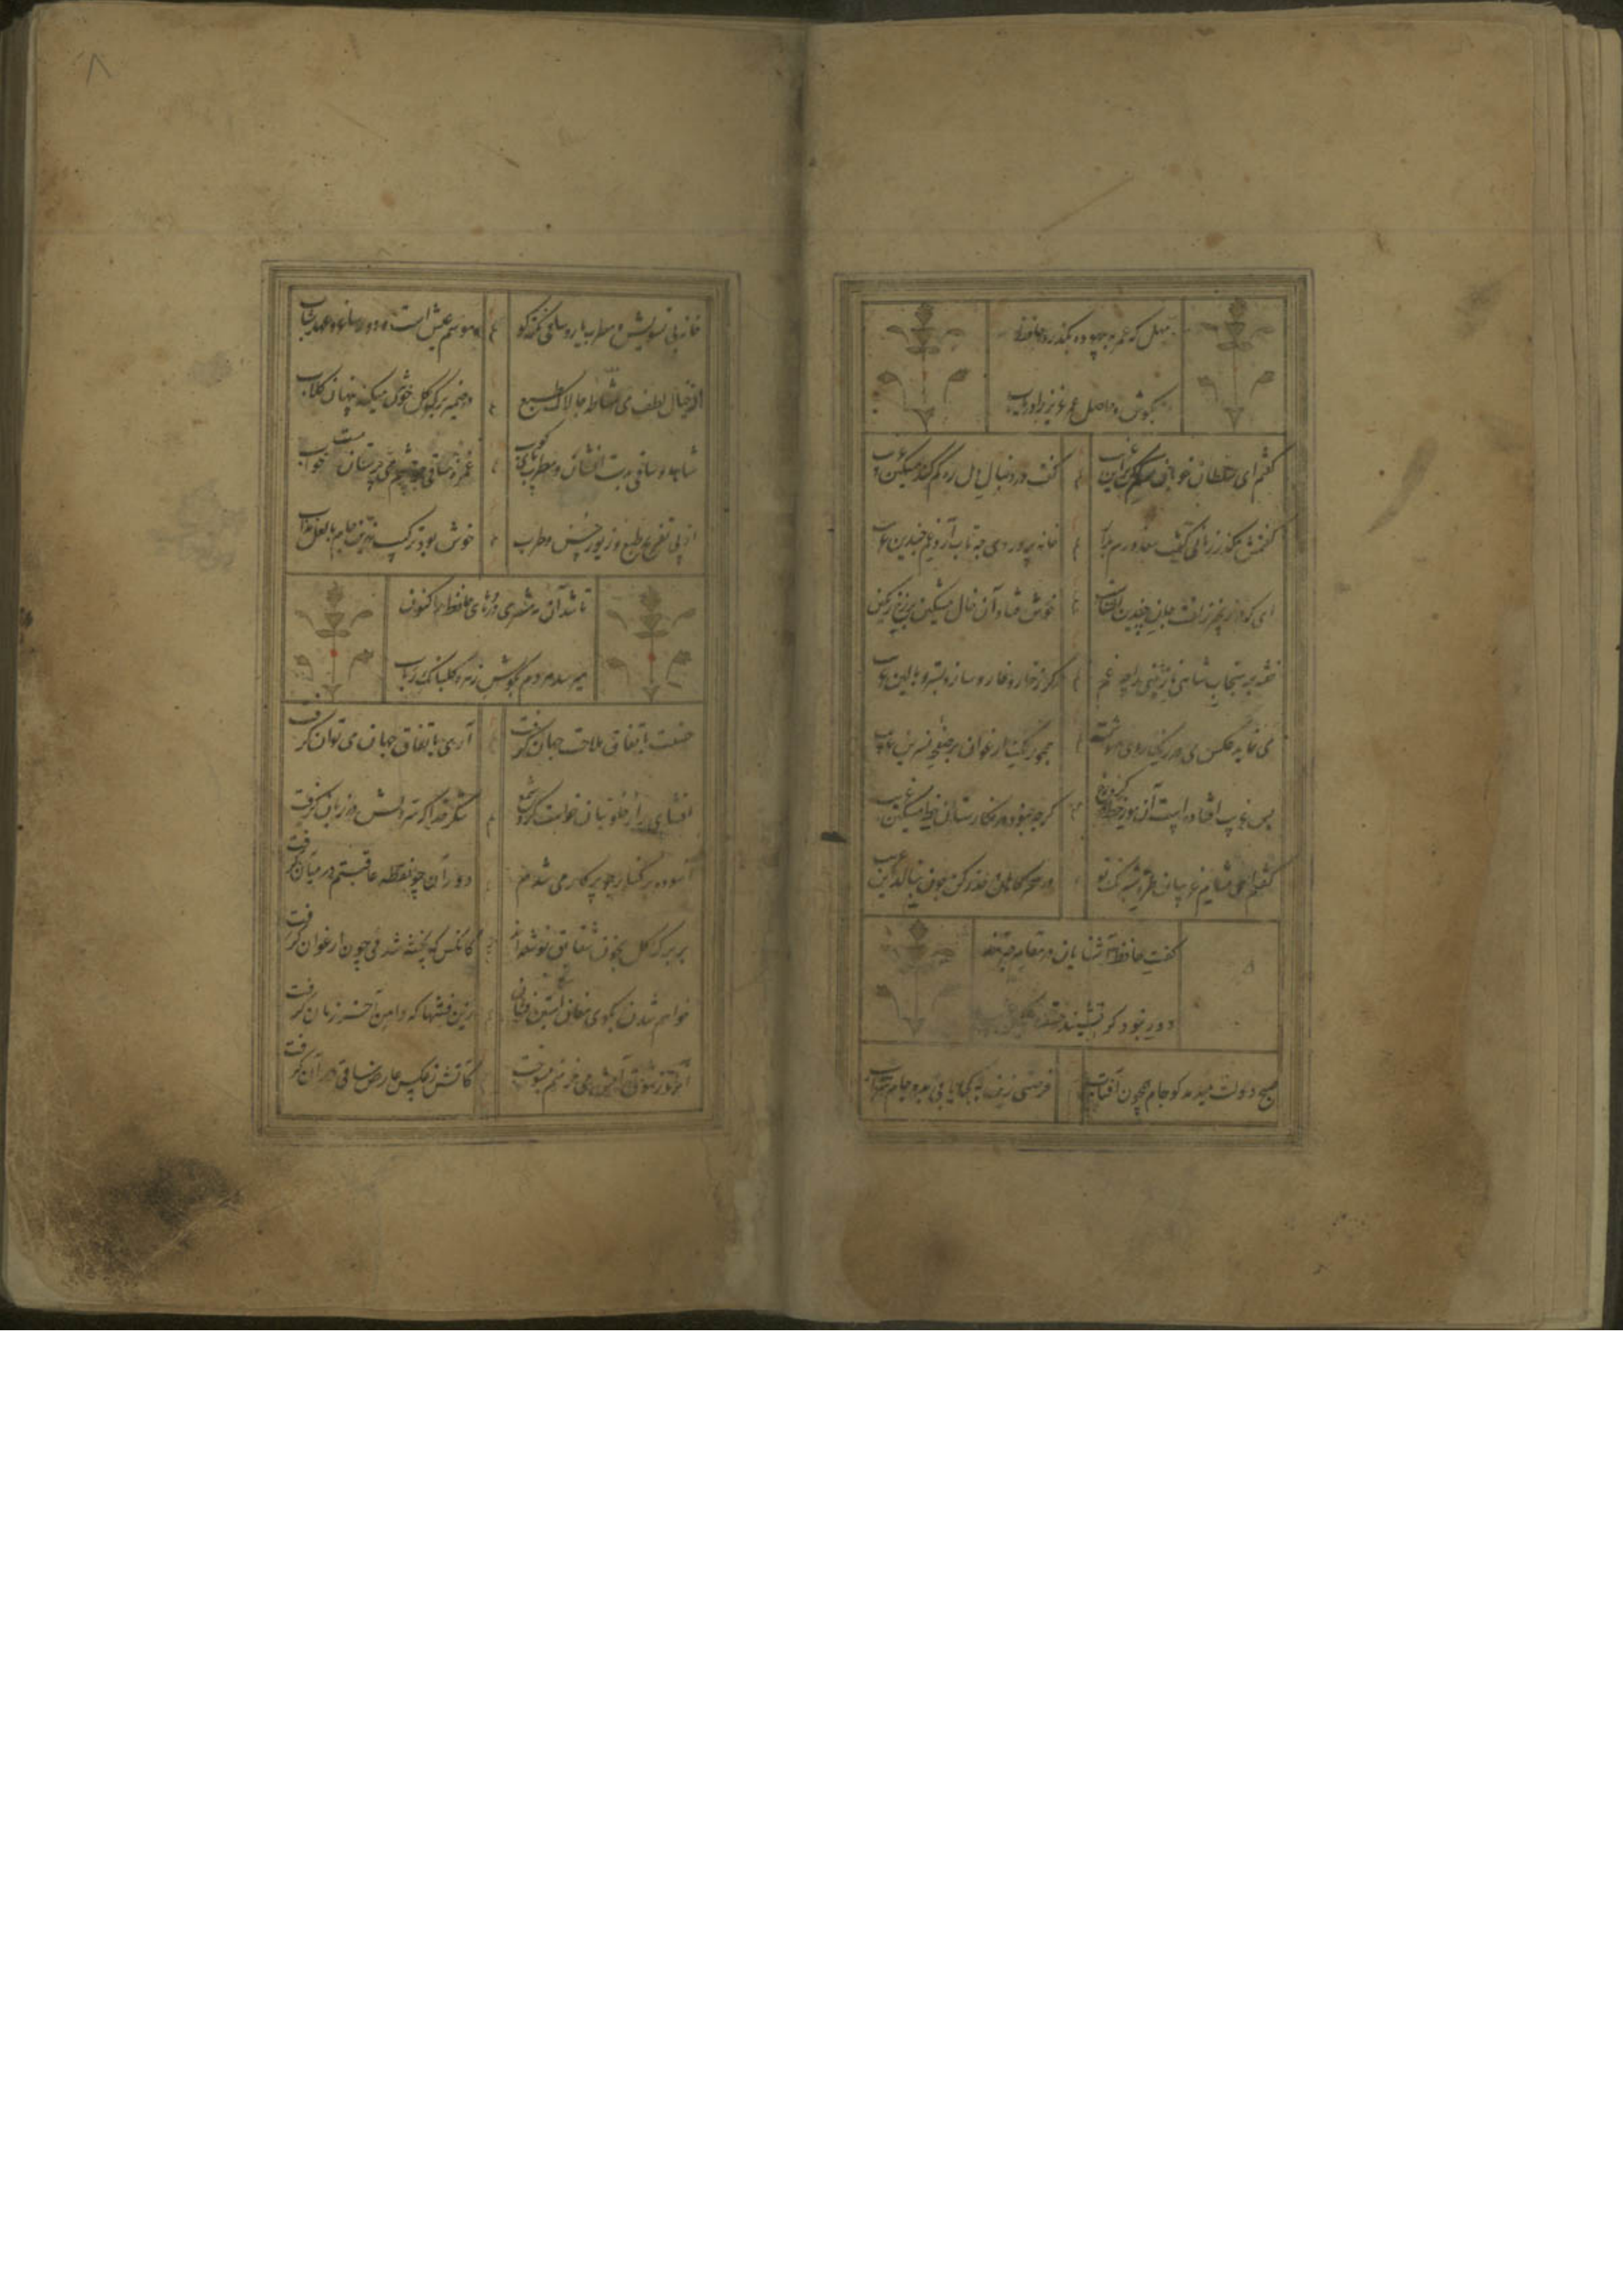 مهل که عمر به بیهوده بگذرد حافظ
بکوش و حاصل عمر عزیز را دریاب
گفتم ای سلطان خوبان رحم کن برین غریب
گفت در دنبال دل ره گم کند مسکین غریب
گفتمش بگذر زمانی گفت معذورم بدار
خانه پروردی چه تاب آرد غم چندین غریب
ای که در زنجیر زلفت جان چندین آشناست
خوش فتاد آن خال مشکین بر رخ رنگین غریب
خفته بر سنجاب شاهی نازنینی را چه غم
گر ز خار و خاره سازد بستر و بالین غریب
می نماید عکس می در رنگ روی مهوشت
همچو برگ ارغوان بر صفحه نسرین غریب
بس غریب افتاده است آن مور خط گرد رخت
گرچه نبود در نگارستان خط مشکین غریب
گفتم ای شام غریبان طره شبرنگ تو
در سحرگاهان حذر کن چون بنالد این غریب
گفت حافظ آشنایان در مقام حیرتند
دور نبود گر نشیند خسته
صبح دولت میدمد کو جام همچون آفتاب
فرصتی زین به کجا یابی بده جام شراب
خانه بی تشویش و مطرب یار و ساقی نکته گو
موسم عیش است و دور ساغر و عهد شباب
از خیال لطف می مشاطه چالاک طبع
در ضمیر برگ گل خوش میکند پنهان گلاب
شاهد و ساقی بدست افشان و مطرب پای کوب
غمزه ساقی ز چشم می پرستان مست خواب
از پی تفریح طبع و زیور حسن و طرب
خوش بود ترکیب زرین جام با لعل مذاب
تا شد آن مه مشتری درهای حافظ را کنون
میرسد هر دم بگوش زهره گلبانگ رباب
حسنت باتفاق ملاحت جهان گرفت
آری باتفاق جهان می توان گرفت
افشای راز خلوتیان خواست کرد شمع
شکر خدا که سر دلش در زبان گرفت
آسوده بر کنار چو پرکار می شدم
دوران چو نقطه عاقبتم در میان گرفت
بر برگ گل بخون شقایق نوشته اند
کانکس که پخته شد می چون ارغوان گرفت
خواهم شدن بکوی مغان آستین فشان
زین فتنها که دامن آخر زمان گرفت
آن روز شوق آتش می خرمنم بسوخت
کاتش ز عکس عارض ساقی در آن گرفت